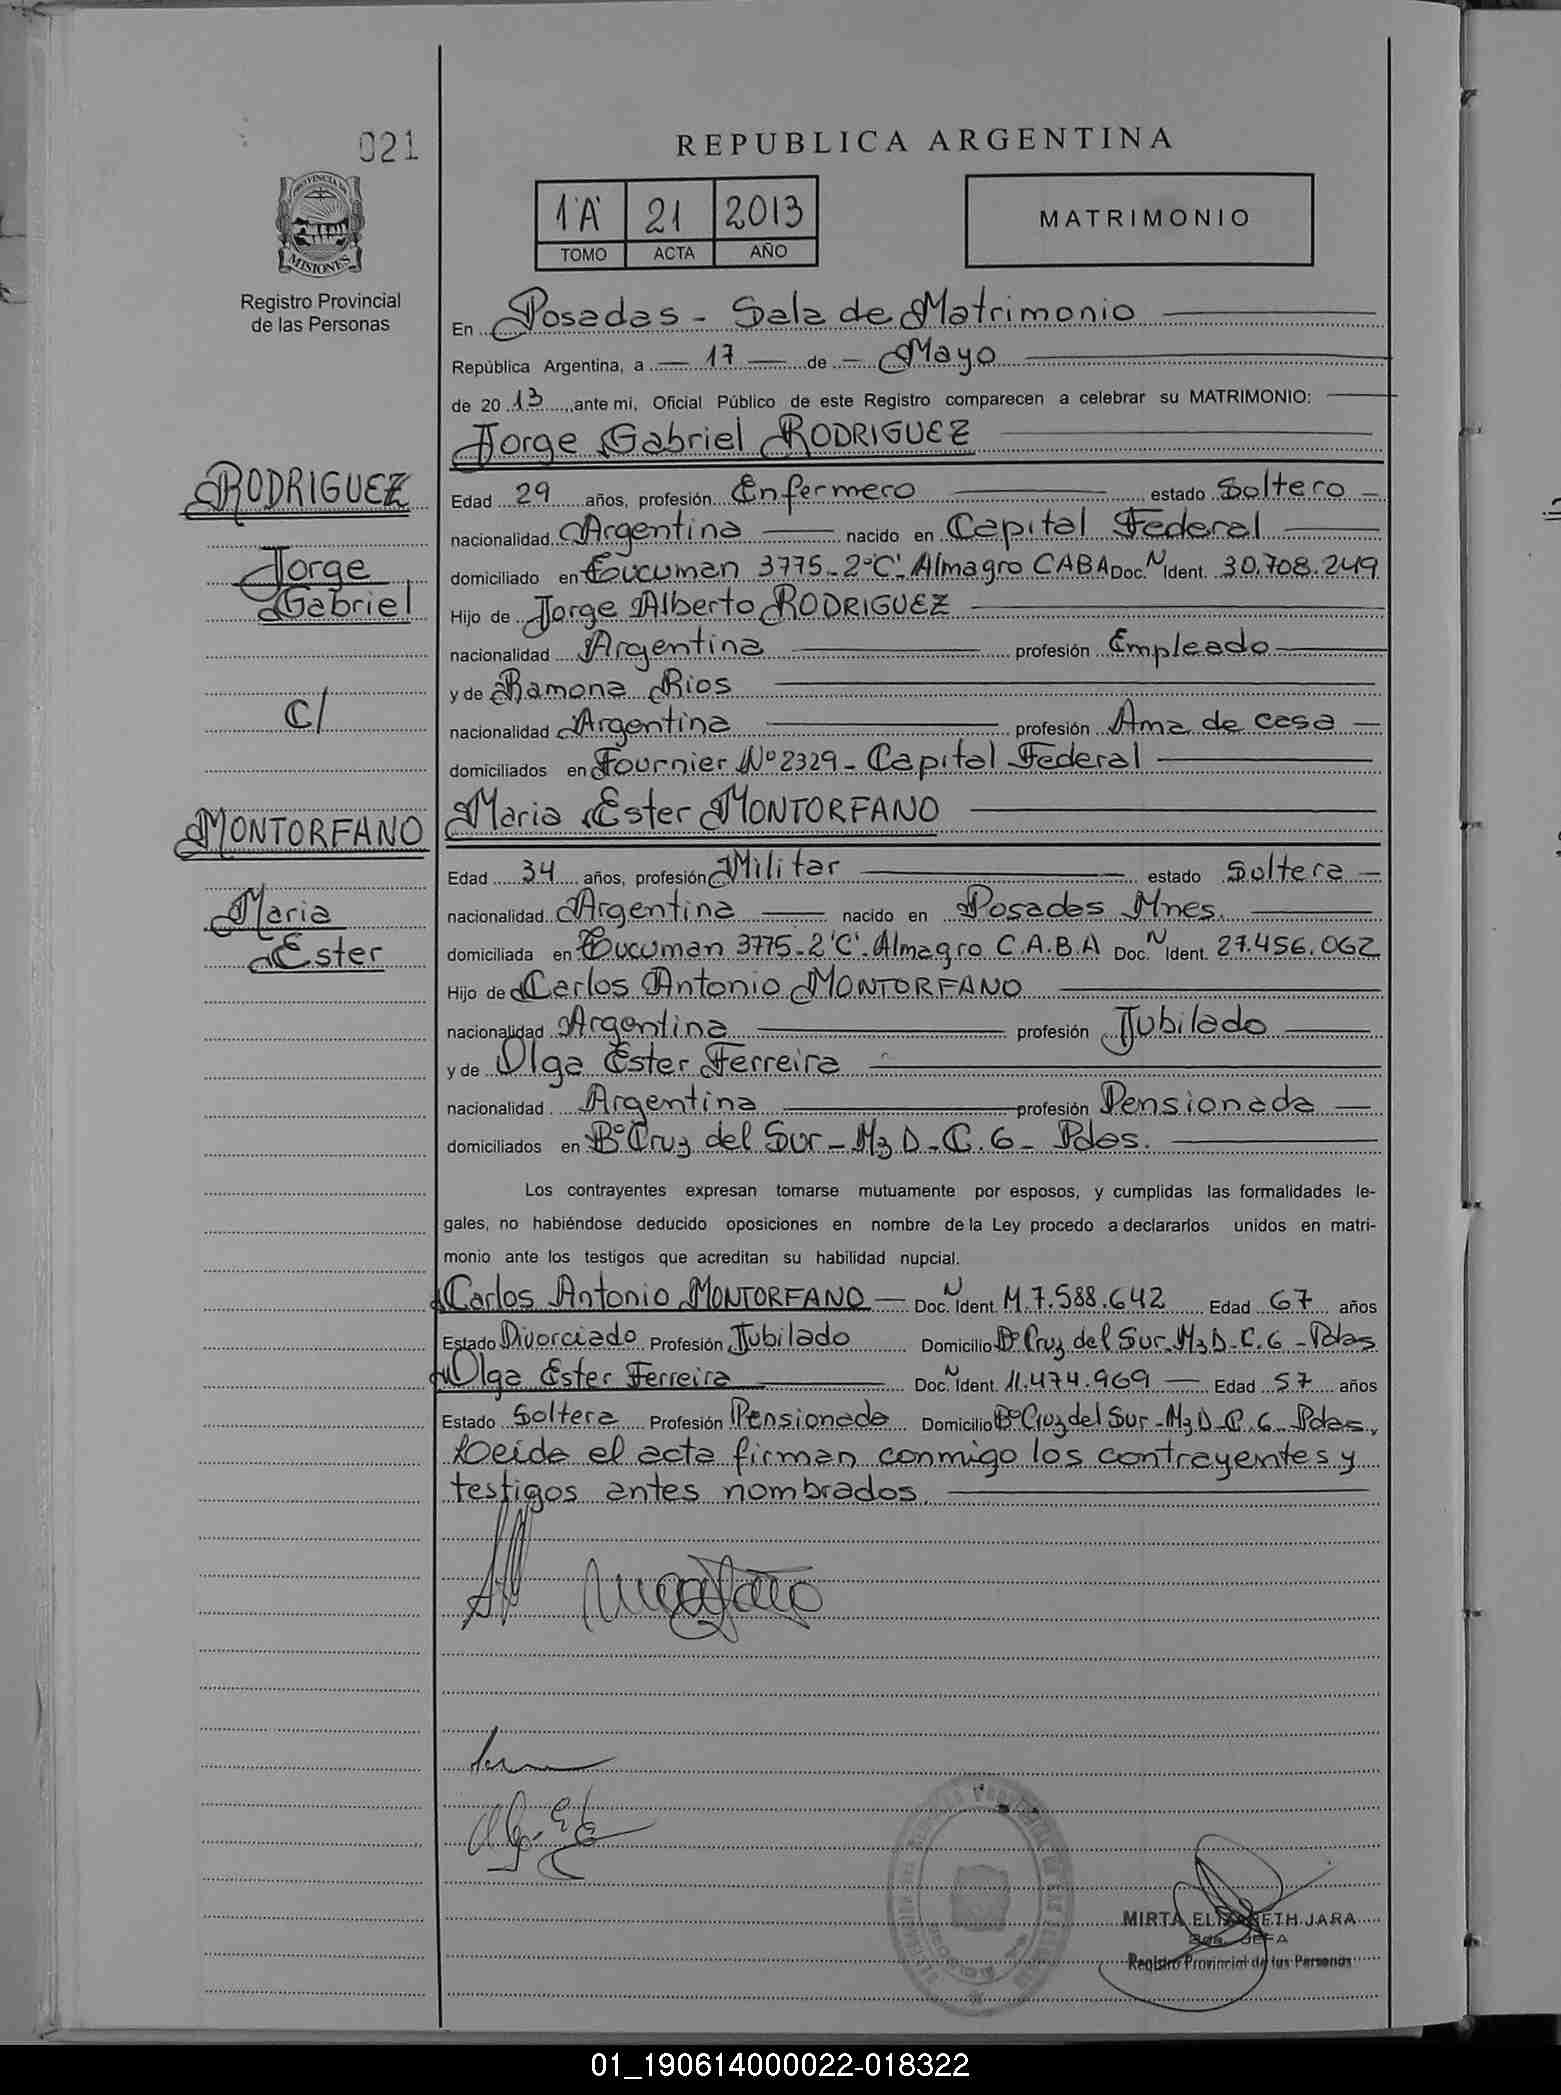 021
REPUBLICA ARGENTINA
1'A' 21 2013
TOMO ACTA AÑO
MATRIMONIO
PROVINCIA DE
MISIONES
Registro Provincial
de las Personas
En Posadas - Sala de Matrimonio
República Argentina, a 17 de Mayo
de 2013, ante mi, Oficial Público de este Registro comparecen a celebrar su MATRIMONIO:
Jorge Gabriel RODRIGUEZ
RODRIGUEZ
Jorge
Gabriel
C/
MONTORFANO
Maria
Ester
Edad 29 años, profesión Enfermero estado Soltero
nacionalidad Argentina nacido en Capital Federal
domiciliado en Tucuman 3775-2°"C". Almagro CABA Doc. N Ident. 30.708.249
Hijo de Jorge Alberto RODRIGUEZ
nacionalidad Argentina profesión Empleado
y de Ramona Rios
nacionalidad Argentina profesión Ama de casa
domiciliados en Fournier Nº 2329 - Capital Federal
Maria Ester MONTORFANO
Edad 34 años, profesión Militar estado Soltera
nacionalidad Argentina nacido en Posadas Mnes.
domiciliada en Tucuman 3775-2'C'. Almagro C.A.B.A Doc. N Ident. 27.456.062
Hijo de Carlos Antonio MONTORFANO
nacionalidad Argentina profesión Jubilado
y de Olga Ester Ferreira
nacionalidad Argentina profesión Pensionada
domiciliados en Bº Cruz del Sur - Mz D - C. 6 - Pdas.
Los contrayentes expresan tomarse mutuamente por esposos, y cumplidas las formalidades le-
gales, no habiéndose deducido oposiciones en nombre de la Ley procedo a declararlos unidos en matri-
monio ante los testigos que acreditan su habilidad nupcial.
Carlos Antonio MONTORFANO - Doc. N Ident. M.7.588.642 Edad 67 años
Estado Divorciado Profesión Jubilado Domicilio Bº Cruz del Sur - Mz D - C. 6 - Pdas
Olga Ester Ferreira Doc. N Ident. 11.474.969 - Edad 57 años
Estado Soltera Profesión Pensionada Domicilio Bº Cruz del Sur - Mz D - C. 6 - Pdas,
Leida el acta firman conmigo los contrayentes y
testigos antes nombrados.
MIRTA ELIZABETH JARA
JEFA
Registro Provincial de las Personas
01_190614000022-018322